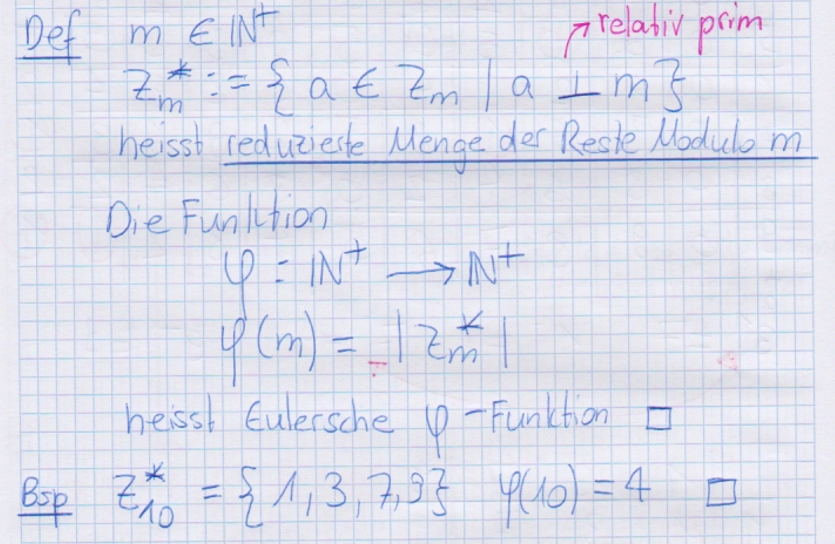 Def m ∈ ℕ⁺ ↗ relativ prim
Zₘ* := { a ∈ Zₘ | a ⊥ m }
heisst reduzierte Menge der Reste Modulo m
Die Funktion
φ : ℕ⁺ → ℕ⁺
φ(m) = | Zₘ* |
heisst Eulersche φ-Funktion □
Bsp Z₁₀* = { 1, 3, 7, 9 } φ(10) = 4 □